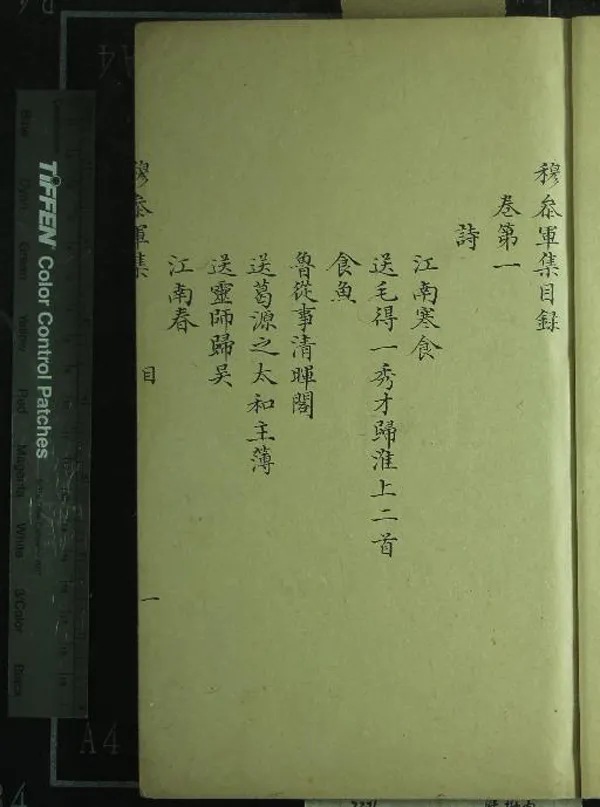 穆叅軍集目録
卷第一
詩
江南寒食
送毛得一秀才歸淮上二首
食魚
魯從事清暉閣
送葛源之太和主薄
送靈師歸吴
江南春
穆叅軍集 目 一
TIFFEN Color Control Patches
Blue Cyan Green Yellow Red Magenta White 3/Color Black
A4